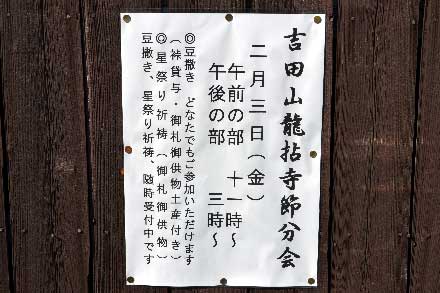 吉田山龍拈寺節分会
二月三日（金）
午前の部　十一時～
午後の部　三時～
◎豆撒き　どなたでもご参加いただけます
（裃貸与・御札御供物土産付き）
◎星祭り祈祷（御札御供物）
豆撒き、星祭り祈祷、随時受付中です